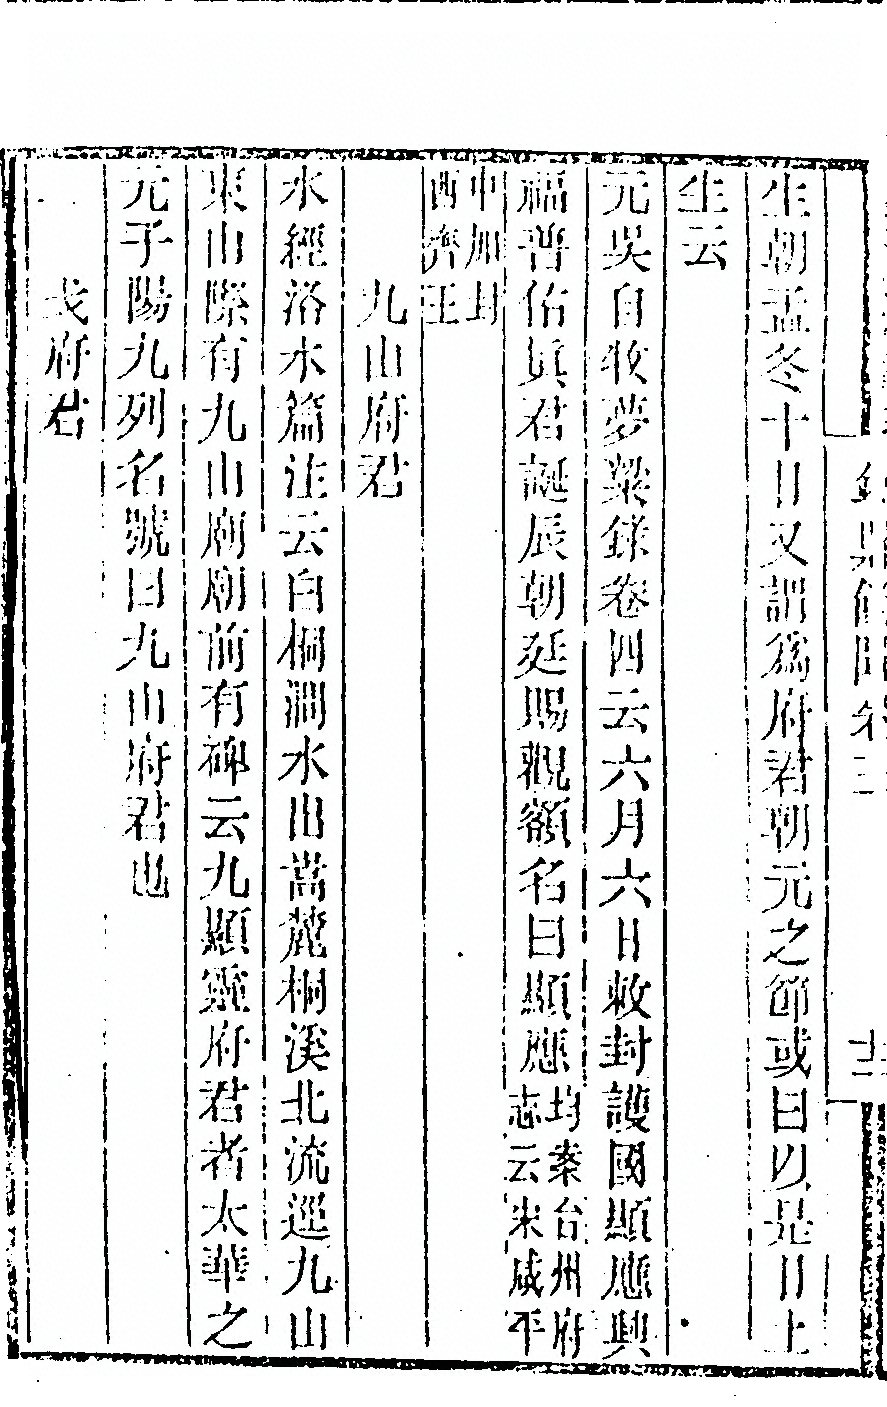 生朝孟冬十日又謂爲府君朝元之節或曰以是日上
生云
元吳自牧夢粱錄卷四云六月六日敕封護國顯應興
福普佑眞君誕辰朝廷賜觀額名曰顯應均案台州府
志云宋咸平
中加封
西齊王
九山府君
水經洛水篇注云白桐澗水出嵩麓桐溪北流逕九山
東山際有九山廟廟前有碑云九顯靈府君者太華之
元子陽九列名號曰九山府君也
戈府君